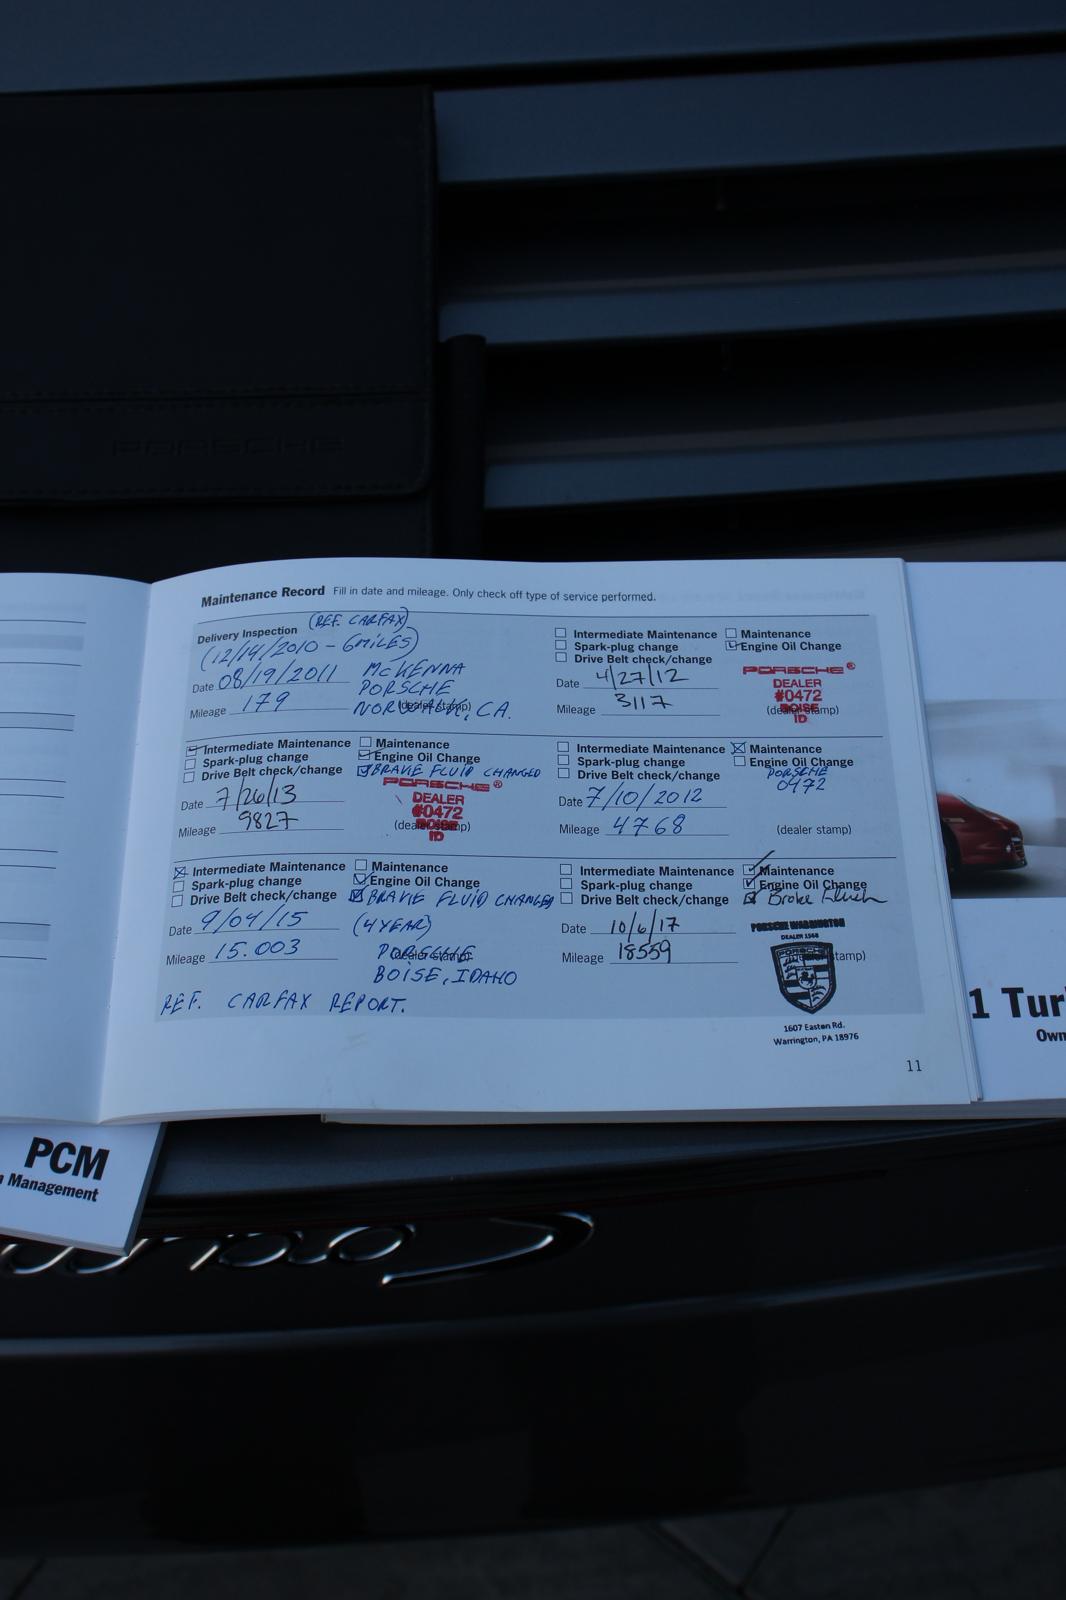 PORSCHE
Maintenance Record Fill in date and mileage. Only check off type of service performed.
Delivery Inspection (REF. CARFAX)
(12/14/2010 - 6MILES)
Date 08/19/2011
Mileage 179
McKENNA
PORSCHE
NORWALK, CA.
(dealer stamp)
Intermediate Maintenance Maintenance
Spark-plug change Engine Oil Change
Drive Belt check/change
Date 4/27/12
Mileage 3117
PORSCHE®
DEALER
#0472
BOISE
ID
(dealer stamp)
Intermediate Maintenance Maintenance
Spark-plug change Engine Oil Change
Drive Belt check/change BRAKE FLUID CHANGED
Date 7/26/13
Mileage 9827
PORSCHE®
DEALER
#0472
BOISE
ID
(dealer stamp)
Intermediate Maintenance Maintenance
Spark-plug change Engine Oil Change
Drive Belt check/change
PORSCHE
0472
Date 7/10/2012
Mileage 4768
(dealer stamp)
Intermediate Maintenance Maintenance
Spark-plug change Engine Oil Change
Drive Belt check/change BRAKE FLUID CHANGED
Date 9/04/15
(4 YEAR)
Mileage 15.003
PORSCHE
(dealer stamp)
BOISE, IDAHO
REF. CARFAX REPORT.
Intermediate Maintenance Maintenance
Spark-plug change Engine Oil Change
Drive Belt check/change Brake Flush
Date 10/6/17
Mileage 18559
PORSCHE WARRINGTON
DEALER 1568
PORSCHE
stamp)
1607 Easton Rd.
Warrington, PA 18976
11
1 Tur
Own
PCM
n Management
Carr